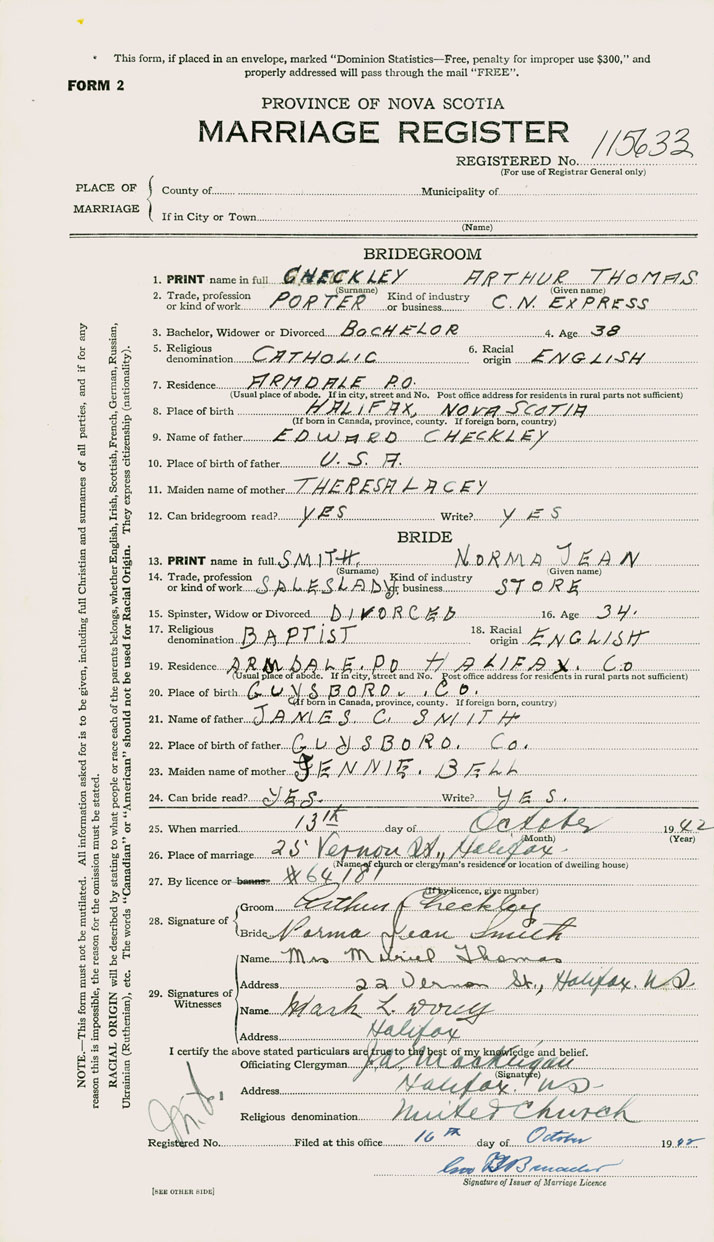 This form, if placed in an envelope, marked "Dominion Statistics—Free, penalty for improper use $300," and
properly addressed will pass through the mail "FREE".
FORM 2
PROVINCE OF NOVA SCOTIA
MARRIAGE REGISTER
REGISTERED No. 115633
(For use of Registrar General only)
PLACE OF MARRIAGE
County of Municipality of
If in City or Town
(Name)
BRIDEGROOM
1. PRINT name in full CHECKLEY ARTHUR THOMAS
(Surname) (Given name)
2. Trade, profession or kind of work PORTER Kind of industry or business C.N. EXPRESS
3. Bachelor, Widower or Divorced BACHELOR 4. Age 38
5. Religious denomination CATHOLIC 6. Racial origin ENGLISH
7. Residence ARMDALE P.O.
(Usual place of abode. If in city, street and No. Post office address for residents in rural parts not sufficient)
8. Place of birth HALIFAX, NOVA SCOTIA
(If born in Canada, province, county. If foreign born, country)
9. Name of father EDWARD CHECKLEY
10. Place of birth of father U.S.A.
11. Maiden name of mother THERESA LACEY
12. Can bridegroom read? YES Write? YES
BRIDE
13. PRINT name in full SMITH. NORMA JEAN
(Surname) (Given name)
14. Trade, profession or kind of work SALESLADY Kind of industry or business STORE
15. Spinster, Widow or Divorced DIVORCED 16. Age 34.
17. Religious denomination BAPTIST 18. Racial origin ENGLISH
19. Residence ARMDALE. PO HALIFAX. CO
(Usual place of abode. If in city, street and No. Post office address for residents in rural parts not sufficient)
20. Place of birth GUYSBORO. CO.
(If born in Canada, province, county. If foreign born, country)
21. Name of father JAMES C. SMITH
22. Place of birth of father GUYSBORO. Co.
23. Maiden name of mother JENNIE. BELL
24. Can bride read? YES. Write? YES.
25. When married 13th day of October 1942
(Month) (Year)
26. Place of marriage 25 Vernon St., Halifax
(Name of church or clergyman's residence or location of dwelling house)
27. By licence or banns
(If by licence, give number)
28. Signature of
Groom Arthur Checkley
Bride Norma Jean Smith
29. Signatures of Witnesses
Name Mrs Muriel Thomas
Address 22 Vernon St., Halifax. N.S.
Name Mark L.
Address Halifax
I certify the above stated particulars are true to the best of my knowledge and belief.
Officiating Clergyman
(Signature)
Address Halifax. N.S.
Religious denomination United Church
Registered No. Filed at this office 16th day of October 1942
Signature of Issuer of Marriage Licence
[SEE OTHER SIDE]
NOTE.—This form must not be mutilated. All information asked for is to be given, including full Christian and surnames of all parties, and if for any
reason this is impossible, the reason for the omission must be stated.
RACIAL ORIGIN will be described by stating to what people or race each of the parents belongs, whether English, Irish, Scottish, French, German, Russian,
Ukrainian (Ruthenian), etc. The words "Canadian" or "American" should not be used for Racial Origin. They express citizenship (nationality).